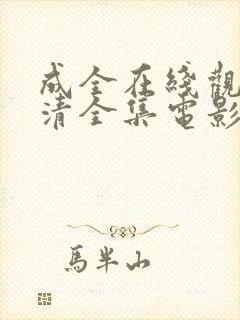 成全在綫觀
清全集電影
馬半山